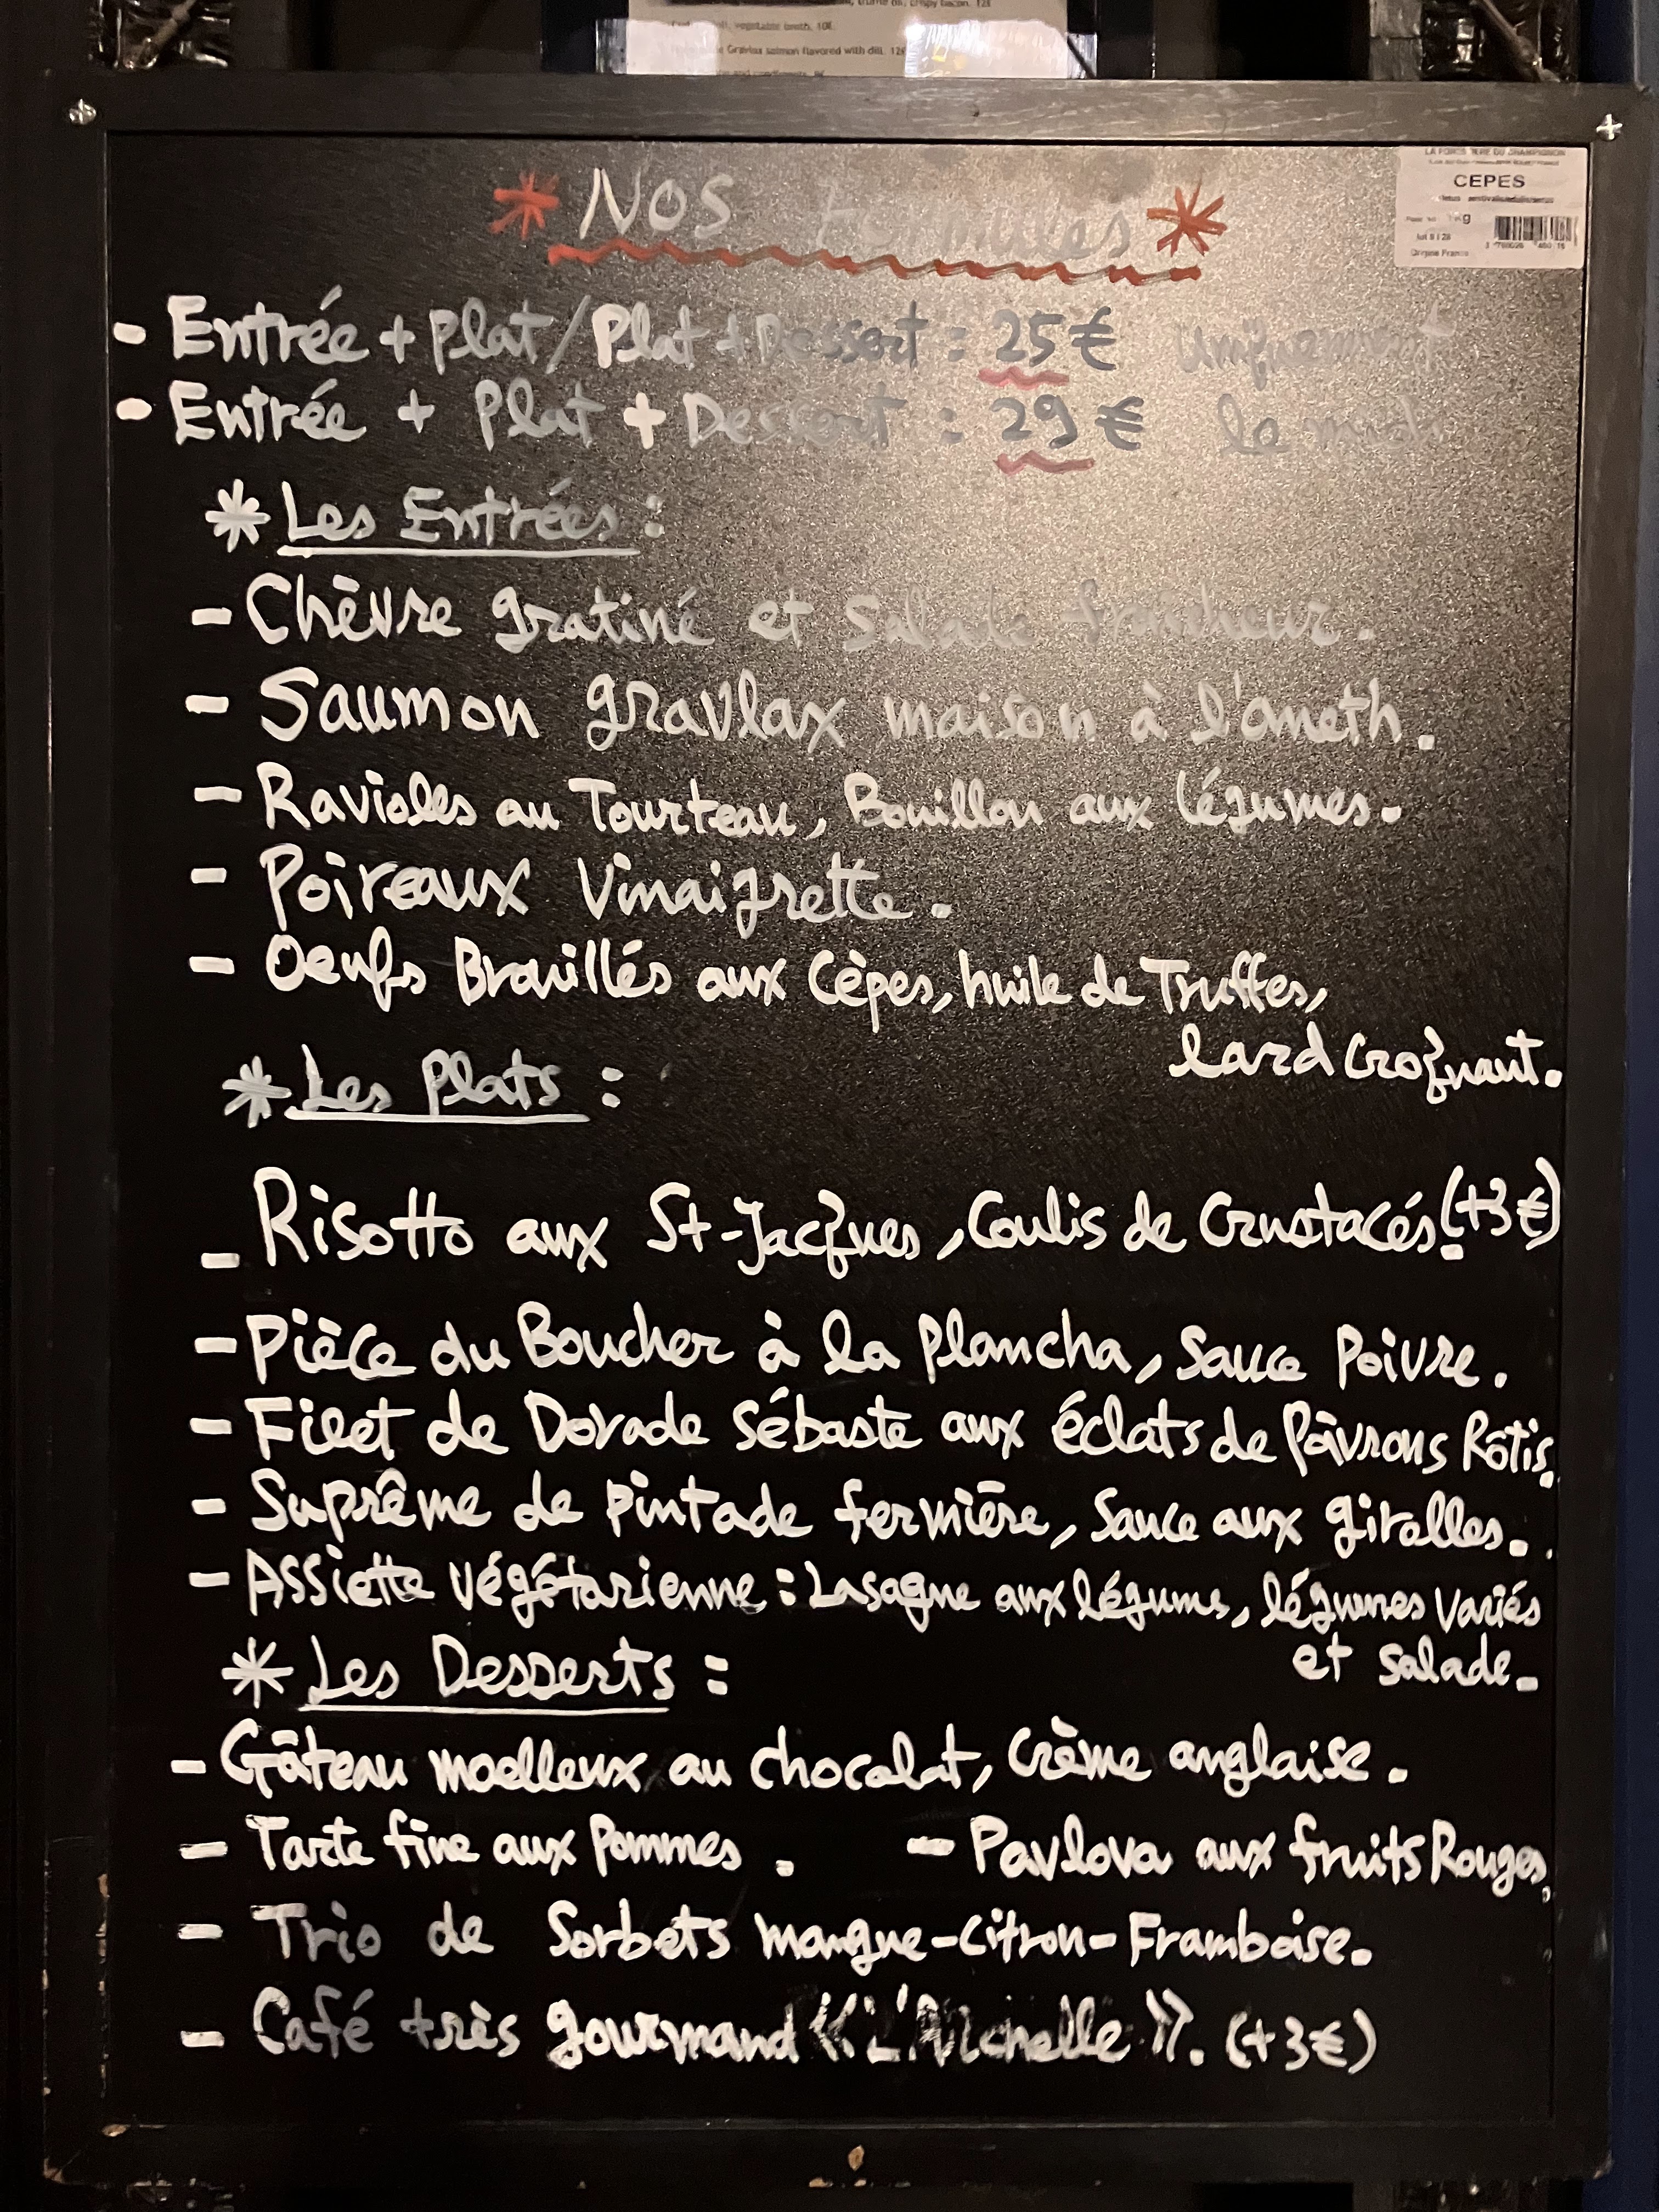 crispy bacon. 12€
vegetable broth. 10€
Gravlax salmon flavored with dill. 12€
CEPES
Origine France
* Nos formules *
- Entrée + Plat / Plat + Dessert : 25 € uniquement
- Entrée + Plat + Dessert : 29 € le midi
* Les Entrées :
- Chèvre gratiné et Salade fraîcheur.
- Saumon gravlax maison à l'aneth.
- Ravioles au Tourteau, Bouillon aux légumes.
- Poireaux Vinaigrette.
- Oeufs Brouillés aux Cèpes, huile de Truffes,
lard Croquant.
* Les Plats :
- Risotto aux St-Jacques, Coulis de Crustacés. (+3 €)
- Pièce du Boucher à la Plancha, Sauce Poivre.
- Filet de Dorade Sébaste aux éclats de Poivrons Rôtis.
- Suprême de Pintade fermière, Sauce aux girolles.
- Assiette Végétarienne : Lasagne aux légumes, légumes Variés
et salade.
* Les Desserts :
- Gâteau moelleux au chocolat, Crème anglaise.
- Tarte fine aux Pommes. - Pavlova aux fruits Rouges.
- Trio de Sorbets mangue-Citron-Framboise.
- Café très gourmand « ». (+3 €)